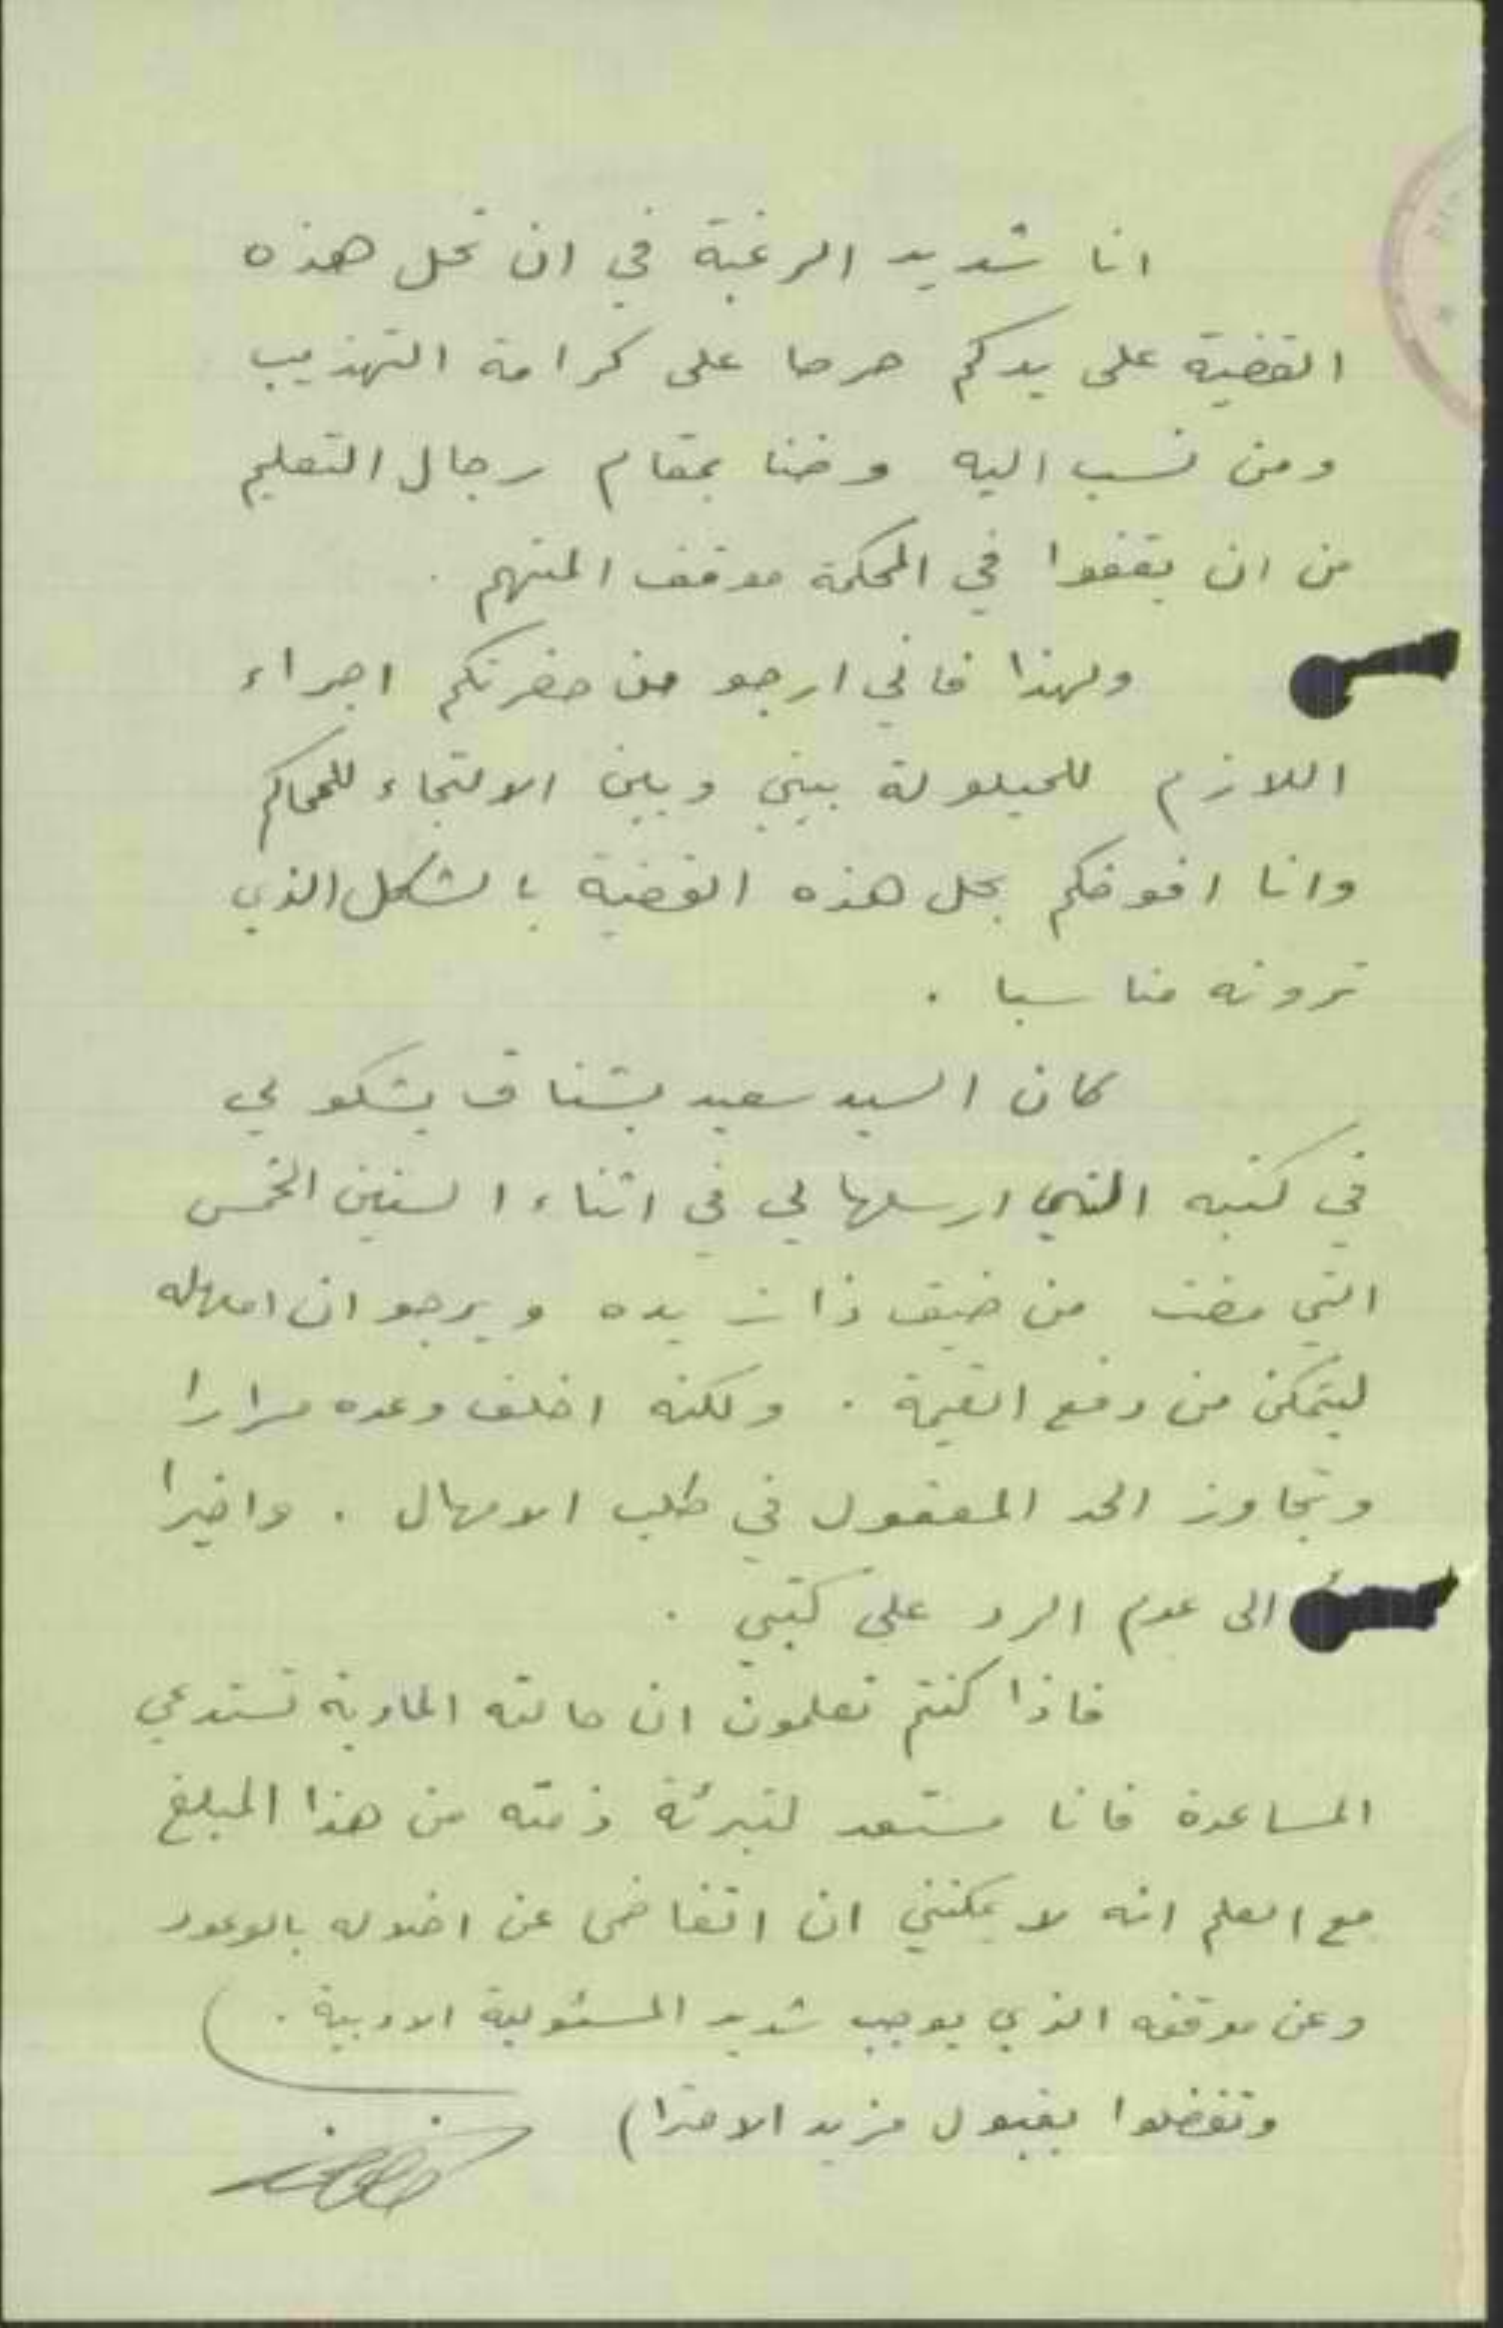 انا شديد الرغبة في ان تحل هذه
القضية على يدكم حرصا على كرامة التهذيب
ومن نسب اليه وضنا بمقام رجال التعليم
من ان يقفوا في المحكمة موقف المتهم .
ولهذا فاني ارجو من حضرتكم اجراء
اللازم للحيلولة بيني وبين الالتجاء للمحاكم
وانا افوضكم بحل هذه القضية بالشكل الذي
ترونه مناسبا .
كان السيد سعيد بشناق يشكو لي
في كتبه التي ارسلها لي في اثناء السنين الخمس
التي مضت من ضيق ذات يده ويرجو ان امهله
ليتمكن من دفع القيمة . ولكنه اخلف وعده مرارا
وتجاوز الحد المعقول في طلب الامهال . واخيرا
الى عدم الرد على كتبي .
فاذا كنتم تعلمون ان حالته المادية تستدعي
المساعدة فانا مستعد لتبرئة ذمته من هذا المبلغ
مع العلم انه لا يمكنني ان اتغاضى عن اخلاله بالوعود
وعن موقفه الذي يوجب شديد المسئولية الادبية .
وتفضلوا بقبول مزيد الاحترام